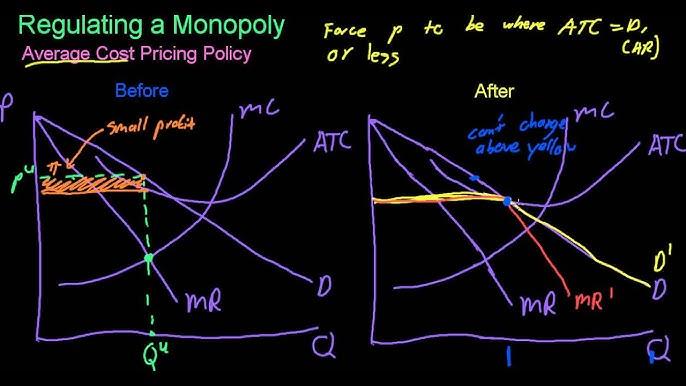 Regulating a Monopoly
Average Cost Pricing Policy
Force P to be where ATC = D,
or less
(AR)
Before
After
P
small profit
MC
ATC
π
Pᵘ
MR
D
Qᵘ
Q
can't charge
above yellow
MC
ATC
MR
MR'
D'
D
Q